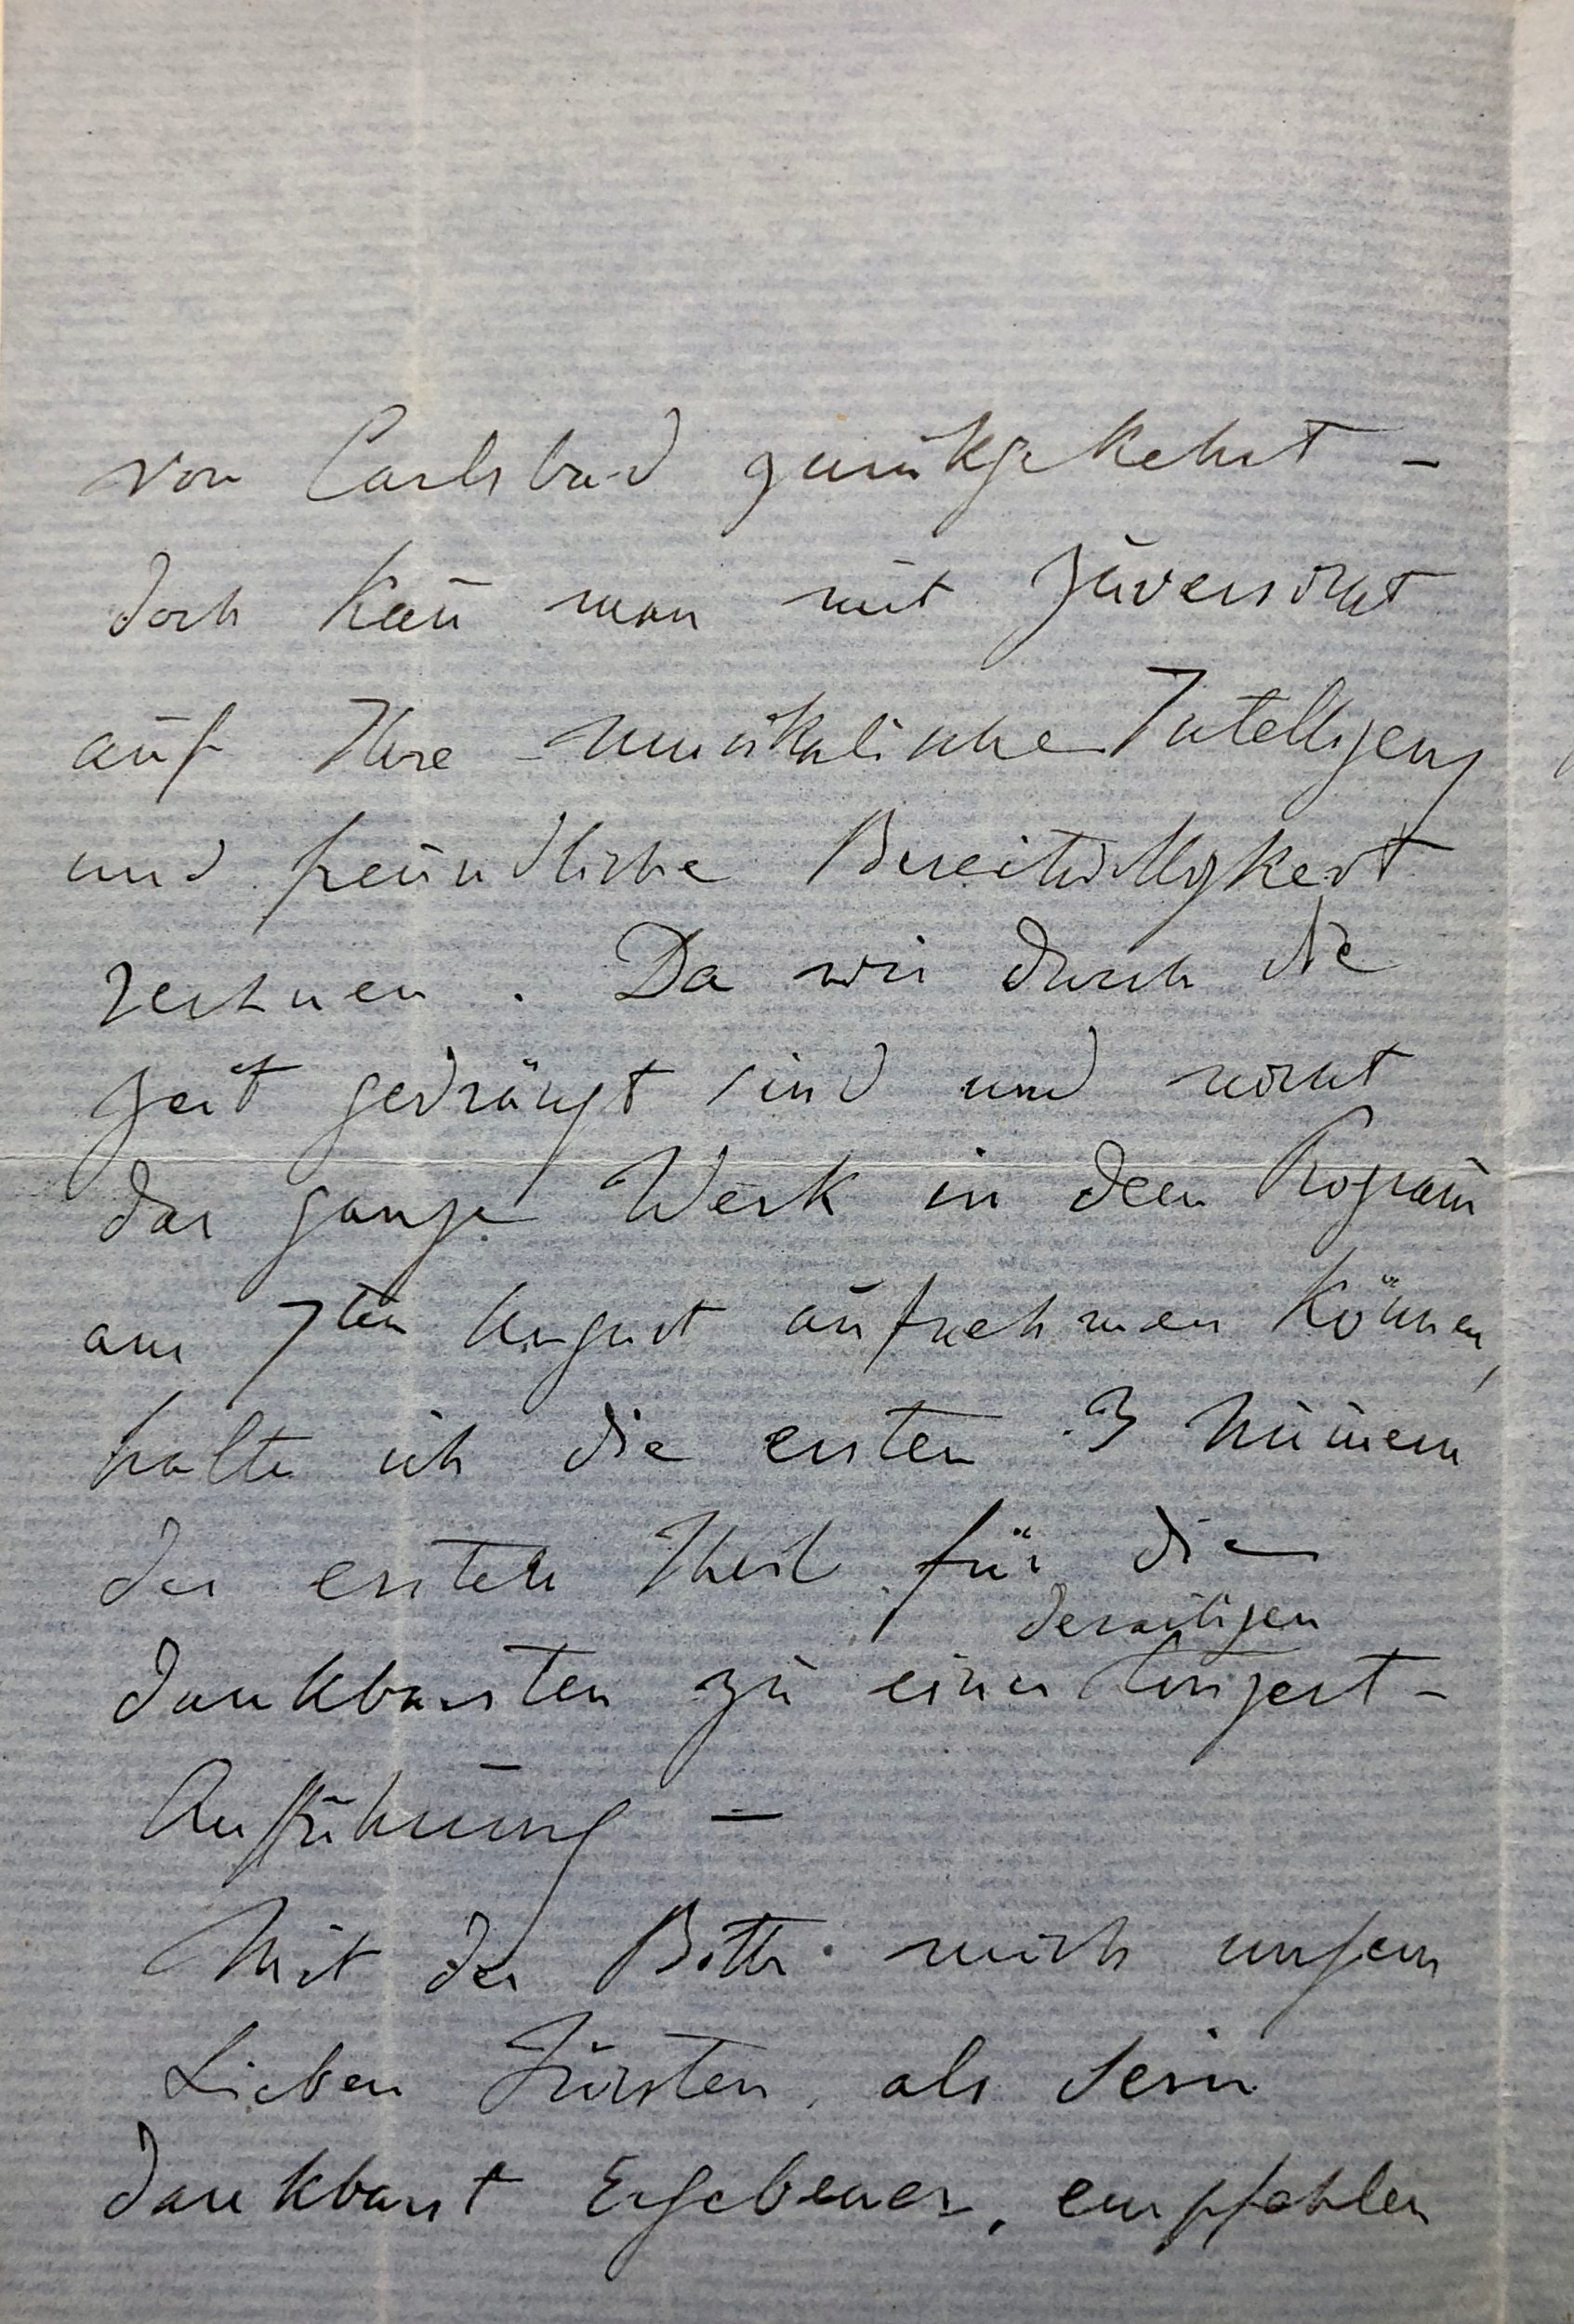 von Carlsbad zurükgekehrt –
doch kan̄ man mit Zuversicht
auf Ihre musikalische Intelligenz
und freundliche Bereitwilligkeit
rechnen. Da wir durch die
Zeit gedrängt sind und nicht
das ganze Werk in dem Program̄
am 7ten August aufnehmen können,
halte ich die ersten 3 Num̄ern
des ersten Theil für die
dankbarsten zu einer derartigen Conzert-
Aufführung –
Mit der Bitte mich unsern
Lieben Fürsten, als sein
dankbarst Ergebener, empfehlen